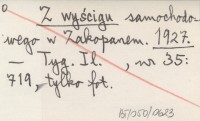 Z wyścigu samochodo-
wego w Zakopanem. 1927.
— Tyg. Il., nr 35:
719, tylko fot.